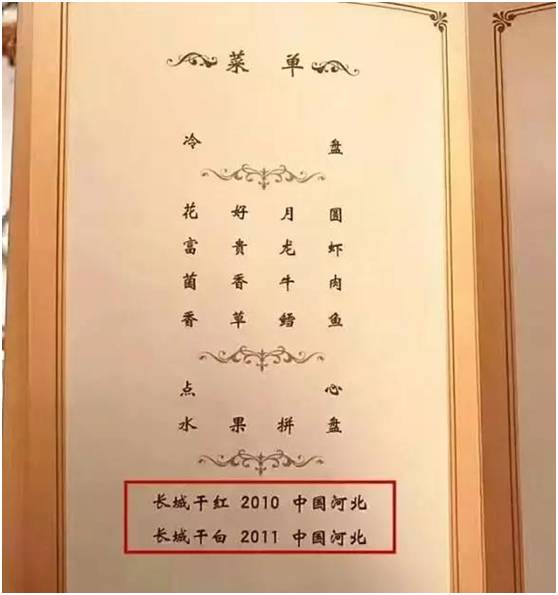 菜单
冷盘
花好月圆
富贵龙虾
菌香牛肉
香草鳕鱼
点心
水果拼盘
长城干红 2010 中国河北
长城干白 2011 中国河北